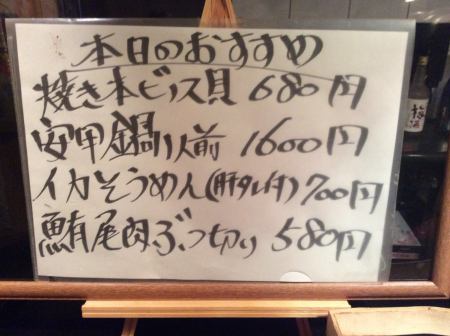 本日のおすすめ
焼き本ビノス貝 680円
安甲鍋1人前 1600円
イカそうめん(肝タレ付)700円
鮪尾肉ぶつ切り 580円
梅酒